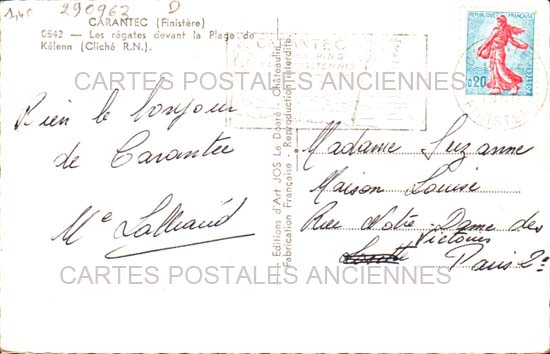 1,40
290962 D
CARANTEC (Finistère)
0542 — Les régates devant la Plage de
Kélenn (Cliché R.N.).
CARANTEC
REPUBLIQUE FRANÇAISE
0,20
CARTES POSTALES ANCIENNES
Rien le bonjour
de Carantec
Editions d'Art JOS Le Doaré - Châteaulin
Fabrication Française - Reproduction interdite.
Madame Suzanne
Maison Louise
Rue Notre-Dame des
Victoires
Paris 2e
CARTES POSTALES ANCIENNES